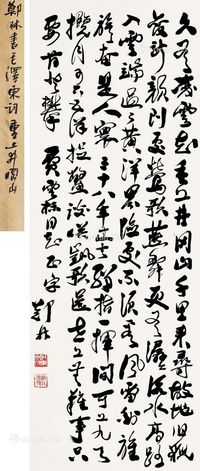 鄭林書毛澤東詞重上井岡山
久有凌雲志重上井冈山千里来尋故地旧貌
变新颜到处莺歌燕舞更有潺潺流水高路
入雲端過了黄洋界險处不須看風雷动旌
旗奋是人寰三十八年过去弹指一揮间可上九天
攬月可下五洋捉鳖谈笑凯歌還世上无難事只
要肯登攀 同志正字 鄭林